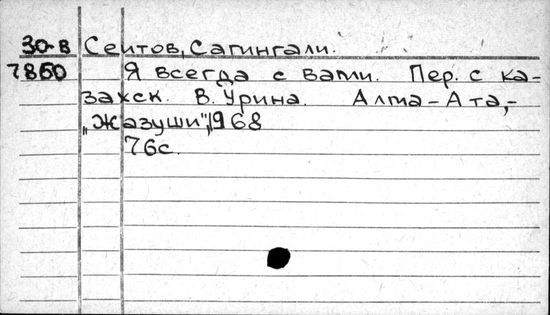 30-в Сеитов, Сагингали.
7860 Я всегда с вами. Пер. с ка-
захск. В. Урина. Алма-Ата,-
„Жазуши", 1968
76с.